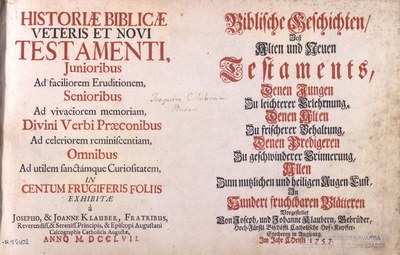 HISTORIÆ BIBLICÆ
VETERIS ET NOVI
TESTAMENTI,
Junioribus
Ad faciliorem Eruditionem,
Senioribus
Ad vivaciorem memoriam,
Divini Verbi Præconibus
Ad celeriorem reminiscentiam,
Omnibus
Ad utilem sanctamque Curiositatem,
IN
CENTUM FRUGIFERIS FOLIIS
EXHIBITÆ
á
JOSEPHO, & JOANNE KLAUBER, FRATRIBUS,
Reverendiss. & Serenissi Principis, & Episcopi Augustani
Calcographis Catholicis Augustæ,
ANNO M.DCCLVII.
Biblische Geschichten/
Deß
Alten und Neuen
Testaments,
Denen Jungen
Zu leichterer Erlehrnung,
Denen Alten
Zu frischerer Behaltung,
Denen Predigeren
Zu geschwinderer Erinnerung,
Allen
Zum nutzlichen und heiligen Augen-Lust,
In
Hundert fruchtbaren Blätteren
Vorgestellet
Von Joseph, und Johanne Klaubern, Gebrüder,
Hoch-Fürstl. Bischöffl. Catholische Hof-Kupffer-
Stecheren in Augspurg.
Im Jahr Christi 1757.